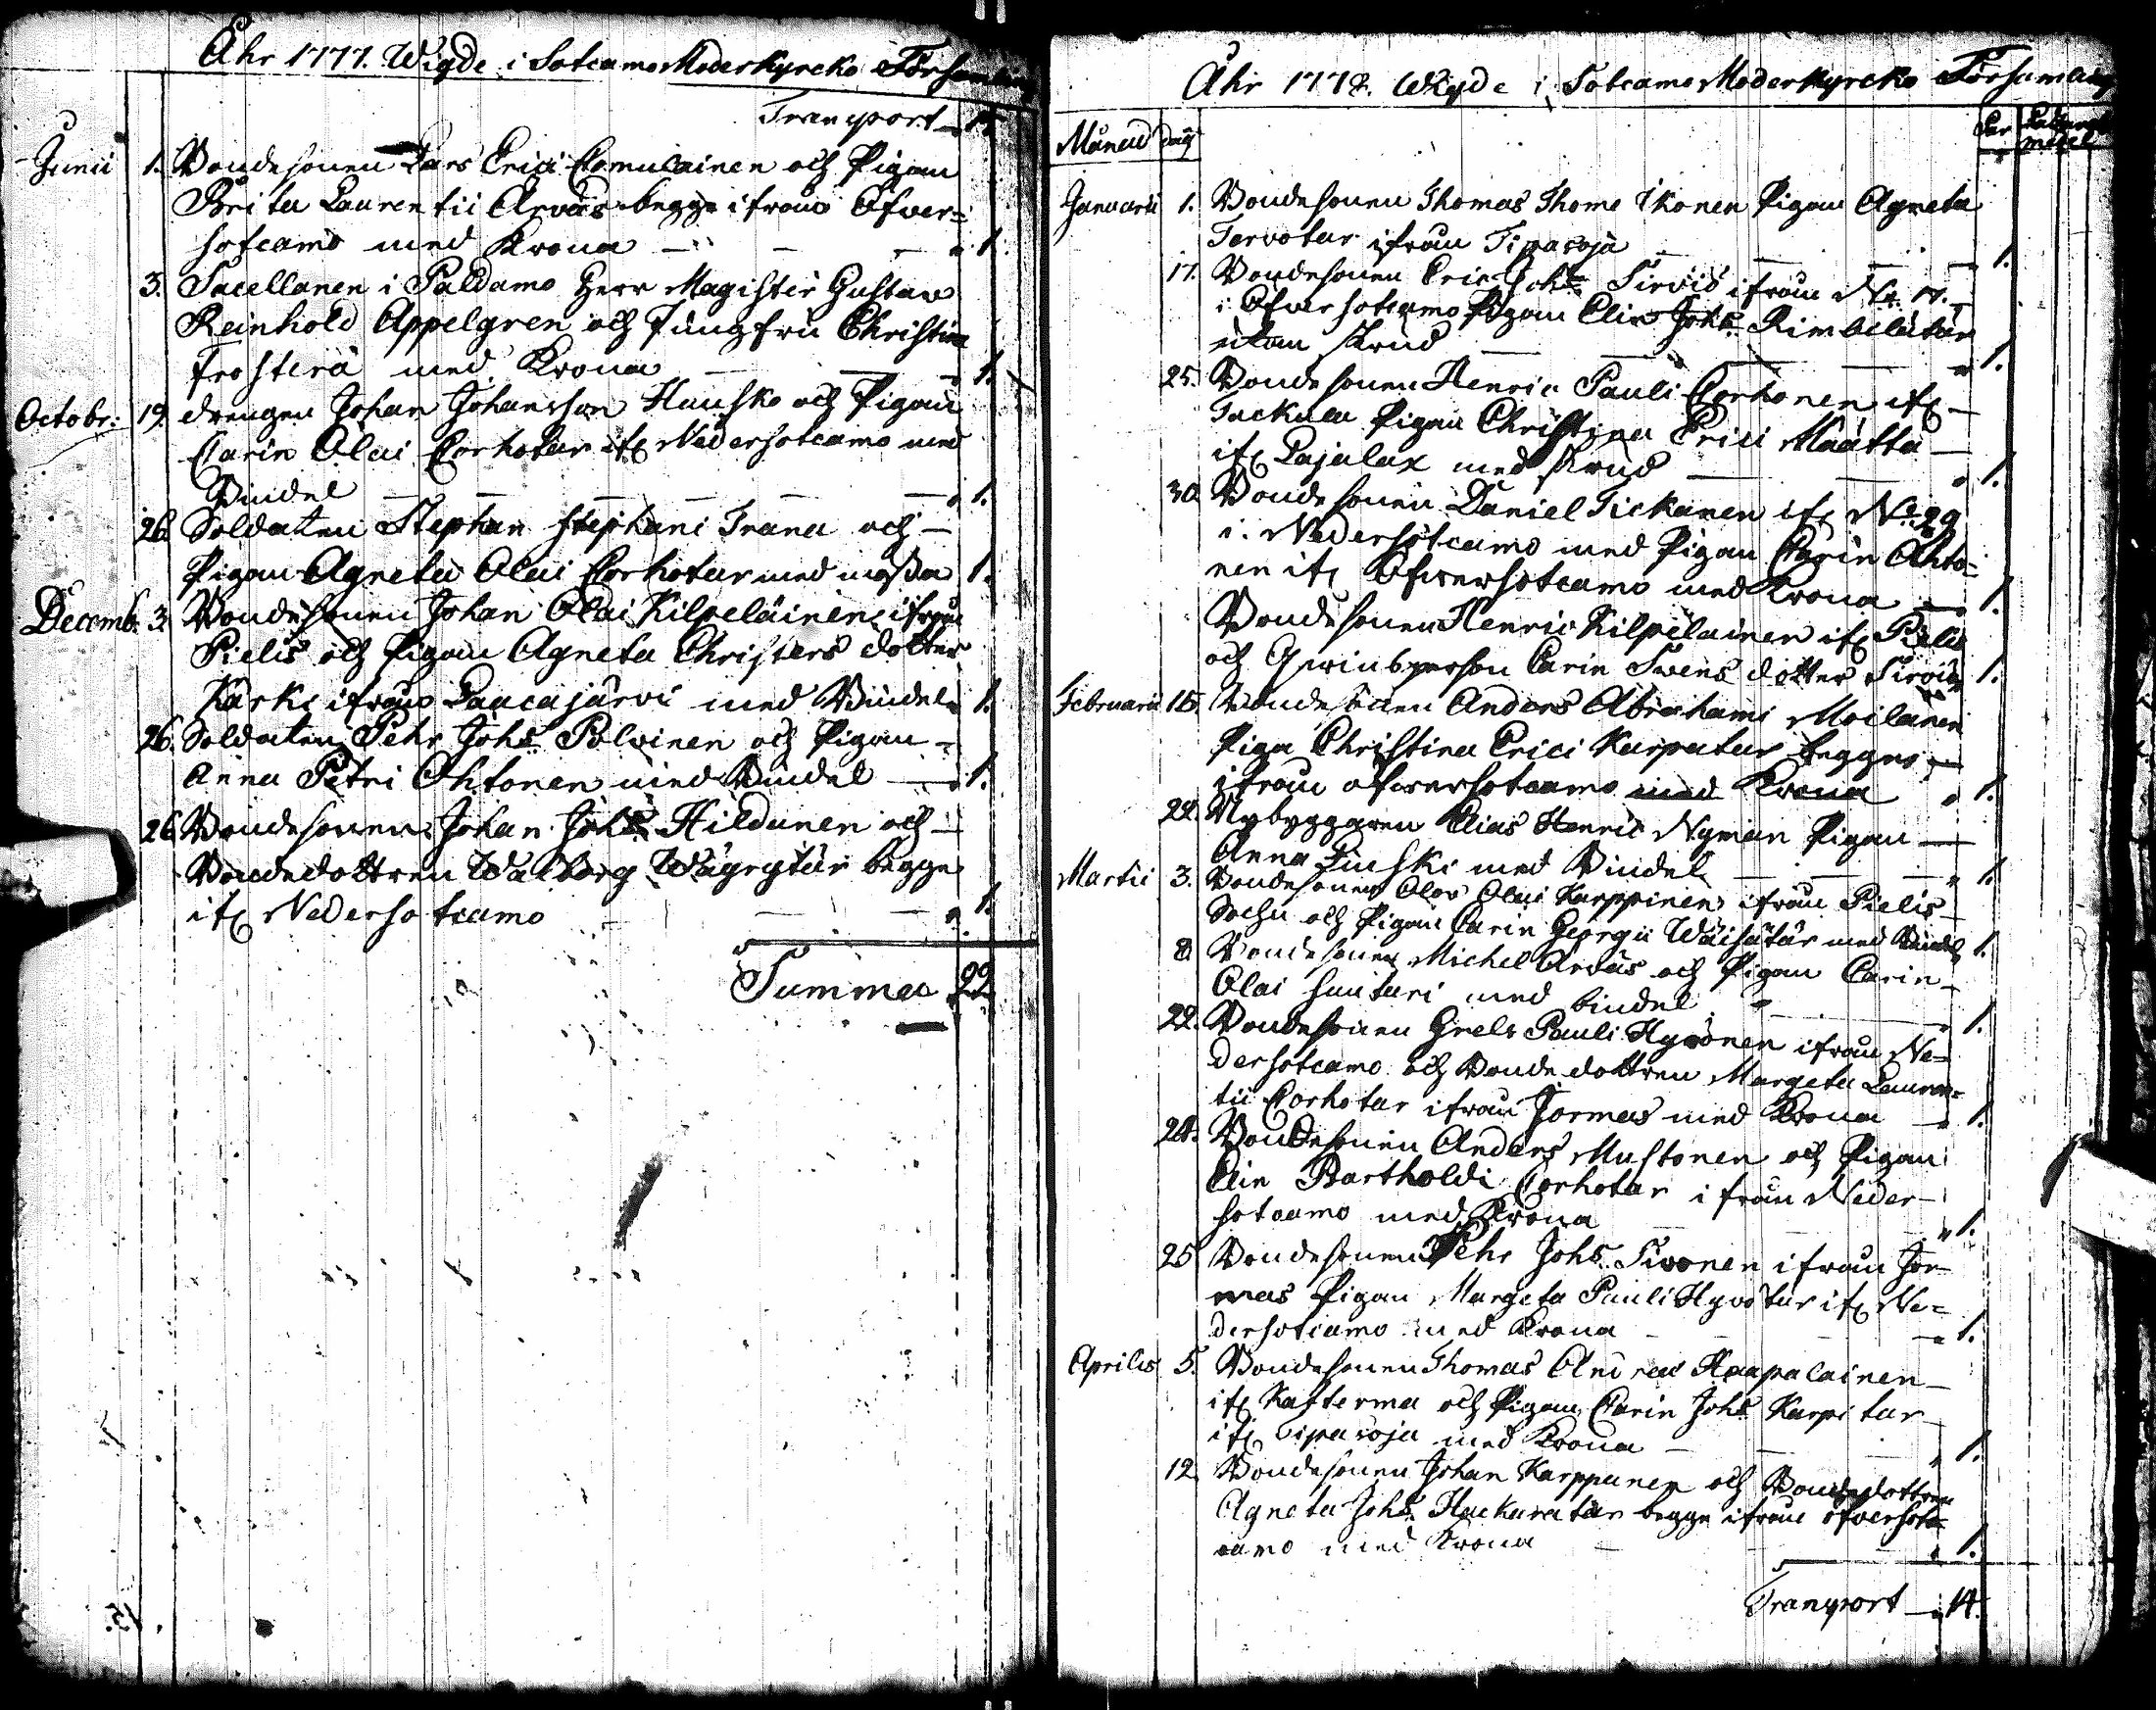 Åhr 1777. Wigde i Sotcamo Moderkyrcko Församling
Transport
Junii 1. Bondesonen Lars Erici Comulainen och Pigan
Brita Laurentii Arvas begge ifrån Öfver=
sotcamo med Krona 1.
3. Sacellanen i Paldamo Herr Magister Gustav
Reinhold Appelgren och Jungfru Christina
Frosterä med Krona 1.
Octobr: 19. drengen Johan Johansson Hausko och Pigan
Carin Olai Corhotar if Nedersotcamo med
Bindel 1.
26. Soldaten Stephan Stephani Trana och
Pigan Agneta Olai Corhotar med mössa 1.
Decemb. 3. Bondesonen Johan Olai Kilpeläinen ifrån
Pielis och Pigan Agneta Christers dotter
Karki ifrån Laucajärvi med Bindel 1.
26. Soldaten Pehr Johs Polvinen och Pigan
Anna Petri Ohtonen med Bindel 1.
26. Bondesonen Johan Johs Hildunen och
Bondedottren Walborg begge
if Nedersotcamo 1.
Summa 22
Åhr 1778. Wigde i Sotcamo Moderkyrcko Församling
Månad dag Par
Januarii 1. Bondesonen Thomas Thome Ikonen Pigan Agneta
Tervotar ifrån Tipasoja 1.
17. Bondesonen Eric Johs Sirviö ifrån No. 17.
i Öfversotcamo Pigan Elin Johs Kimbelatar
utan skrud 1.
25. Bondesonen Henric Pauli Corhonen if
Tuckala Pigan Christina Erici Määttä
if Lajalax med skrud 1.
30. Bondesonen Daniel Tickanen if No 29
i Nedersotcamo med Pigan Carin Ahto=
nen if Öfwersotcamo med Krona 1.
Bondesonen Henric Kilpelainen if Pielis
och Qwinsperson Carin Svens dotter Sirviö 1.
Februarii 15. Bondesonen Anders Abrahami Moilanen
Piga Christina Erici Karpatar begges
ifrån öfwersotcamo med Krona 1.
22. Nybyggaren Elias Henric Nyman Pigan
Anna Juuski med Bindel 1.
Martii 3. Bondesonen Olov Olai Karppinen ifrån Pielis
Sochn och Pigan Carin Georgii Wäisätär med Bindel 1.
8. Bondesonen Michel Arvas och Pigan Carin
Olai huuturi med bindel 1.
22. Bondesonen Grels Pauli Hyvönen ifrån Ne=
dersotcamo och Bondedottren Margeta Lauren=
tii Corhotar ifrån Jormas med Krona 1.
24. Bondesonen Anders Mustonen och Pigan
Elin Bartholdi Corhotar ifrån Neder=
sotcamo med Krona 1.
25 Bondesonen Pehr Johs Sivonen ifrån Jor=
mas Pigan Margeta Pauli Hyvotar if Ne=
dersotcamo med Krona 1.
Aprilis 5. Bondesonen Thomas Andreæ Haapalainen
if Kasterma och Pigan Carin Johs Karpitar
if Tipasoja med Krona 1.
12. Bondesonen Johan Karppanen och Bondedottren
Agneta Johs Huckuratar begge ifrån öfversot=
camo med Krona 1.
Transport 14.